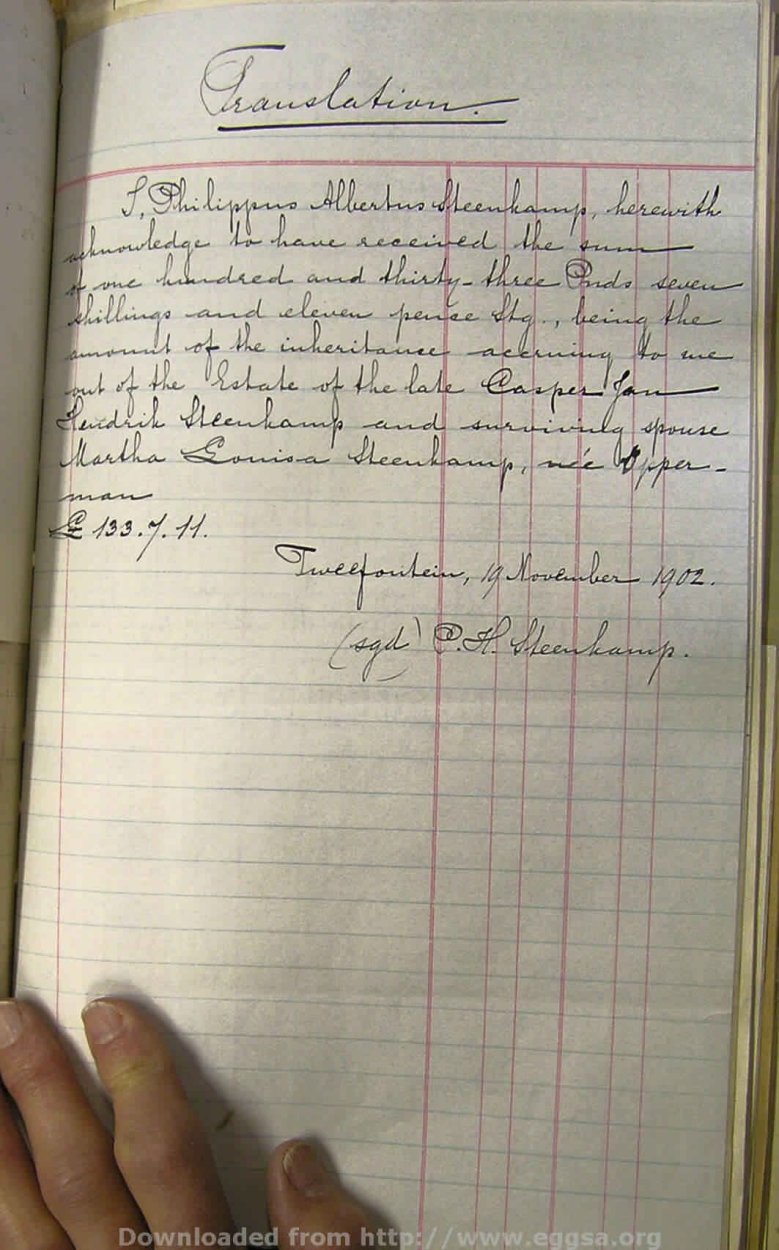 Translation.
I, Philippus Albertus Steenkamp, herewith
acknowledge to have received the sum
of one hundred and thirty-three Pnds seven
shillings and eleven pence Stg., being the
amount of the inheritance accruing to me
out of the Estate of the late Casper Jan
Hendrik Steenkamp and surviving spouse
Martha Louisa Steenkamp, née Opper-
man
£ 133.7.11.
Tweefontein, 19 November 1902.
(sgd) P. H. Steenkamp.
Downloaded from http://www.eggsa.org